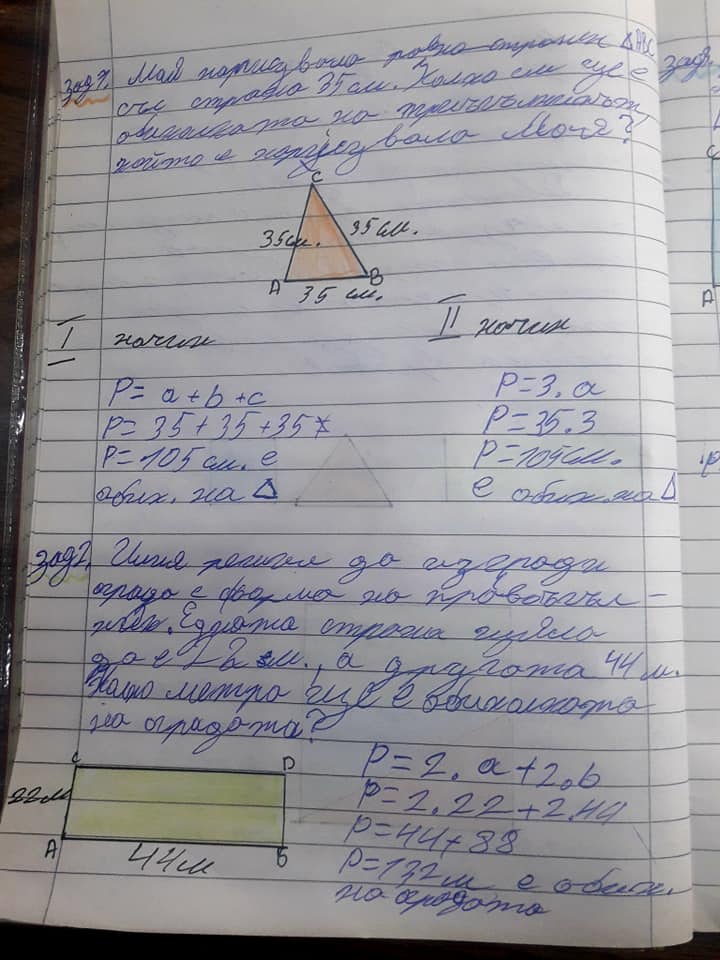 зад1. Мая нарисувала равностранен △ABC
със страна 35 см. Колко см ще е
обиколката на триъгълникът,
който е нарисувала Мая?
C
35см. 35 см.
A B
35 см.
I начин II начин
P= a+b+c P=3.a
P= 35+35+35 P=35.3
P=105 см. е P=105см.
обик. на △ е обик. на △
зад2. решил да изгради
ограда с форма на правоъгъл-
ник. Едната страна
да е 22 м., а другата 44 м.
Колко метра ще е обиколката
на оградата?
C D
22м
A B
44м
P=2.a+2.b
P=2.22+2.44
P=44+88
P=132м е обик.
на оградата
зад3.
C
A
P